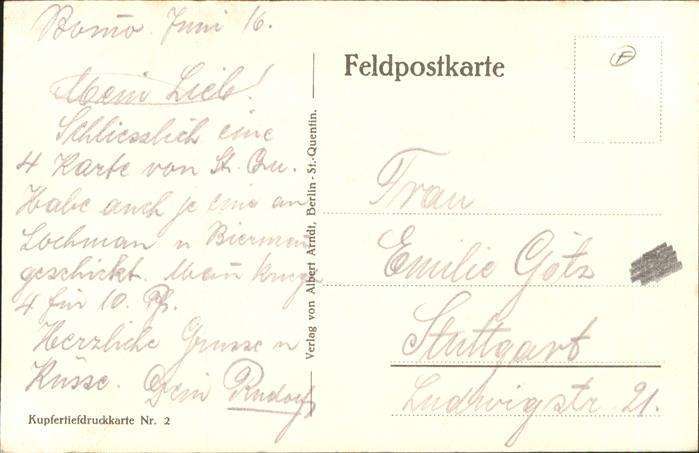 Juni 16.
Mein Lieb!
Schliesslich eine
4 Karte von St. Qu.
Habe auch je eine an
Lochman u Bierman
geschickt. Man kriegt
4 für 10 Pf.
Herzliche Grusse u
Küsse. Dein Rudolf
Kupfertiefdruckkarte Nr. 2
Verlag von Albert Arndt, Berlin - St.-Quentin.
Feldpostkarte
F
Frau
Emilie Götz
Stuttgart
Ludwigstr 21.